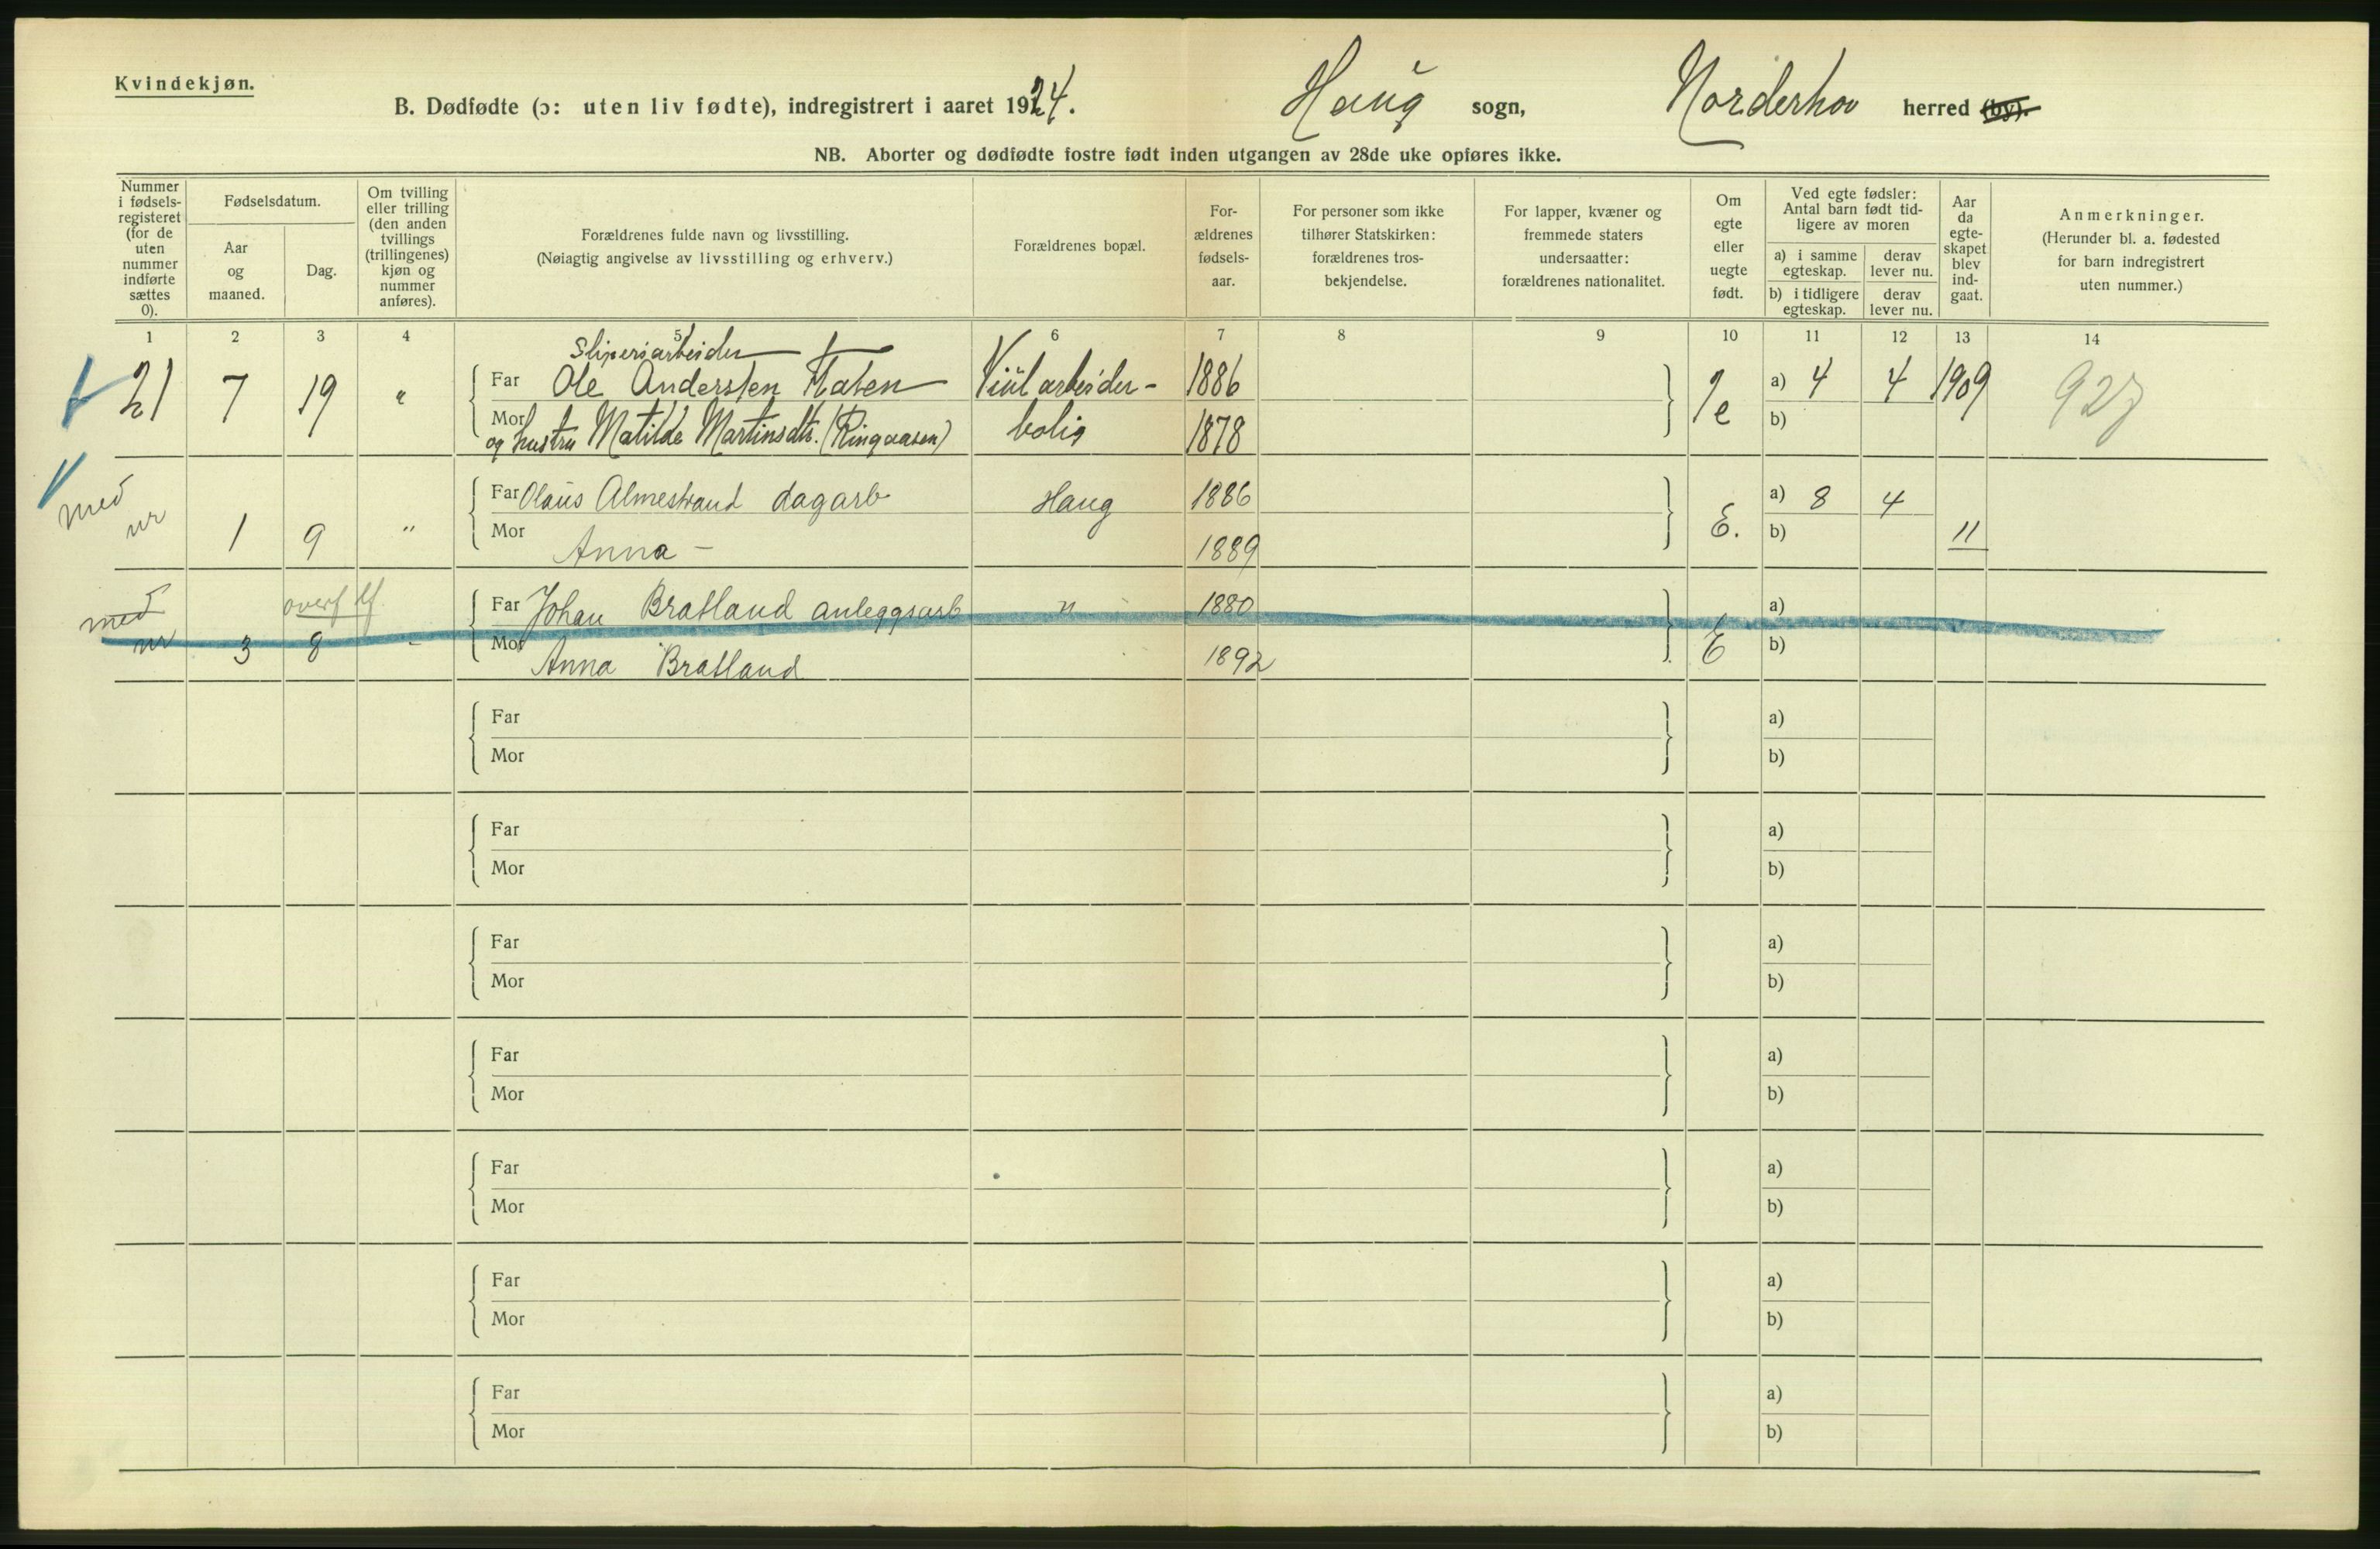 Kvindekjøn.
B. Dødfødte (ɔ: uten liv fødte), indregistrert i aaret 1924. Haug sogn, Norderhov herred (by).
NB. Aborter og dødfødte fostre født inden utgangen av 28de uke opføres ikke.
Nummer i fødsels-registeret (for de uten nummer indførte sættes 0).
Fødselsdatum.
Aar og maaned.
Dag.
Om tvilling eller trilling (den anden tvillings (trillingenes) kjøn og nummer anføres).
Forældrenes fulde navn og livsstilling.
(Nøiagtig angivelse av livsstilling og erhverv.)
Forældrenes bopæl.
For-ældrenes fødsels-aar.
For personer som ikke tilhører Statskirken: forældrenes tros-bekjendelse.
For lapper, kvæner og fremmede staters undersaatter: forældrenes nationalitet.
Om egte eller uegte født.
Ved egte fødsler: Antal barn født tid-ligere av moren
a) i samme egteskap. derav lever nu.
b) i tidligere egteskap. derav lever nu.
Aar da egte-skapet blev ind-gaat.
Anmerkninger.
(Herunder bl. a. fødested for barn indregistrert uten nummer.)
1 2 3 4 5 6 7 8 9 10 11 12 13 14
Sliperiarbeider
21 7 19 " Far Ole Andersen Viul arbeider- 1886 e a) 4 4 1909 927
Mor og hustru Matilde Martinsdtr. (Ringaasen) bolig 1878 b)
med nr 1 9 " Far Olaus Almestrand dagarb Haug 1886 E. a) 8 4 11
Mor Anna - 1889 b)
med nr 3 8 - Far Johan Bratland anleggsarb " 1880 E a)
Mor Anna Bratland 1892 b)
Far a)
Mor b)
Far a)
Mor b)
Far a)
Mor b)
Far a)
Mor b)
Far a)
Mor b)
Far a)
Mor b)
Far a)
Mor b)